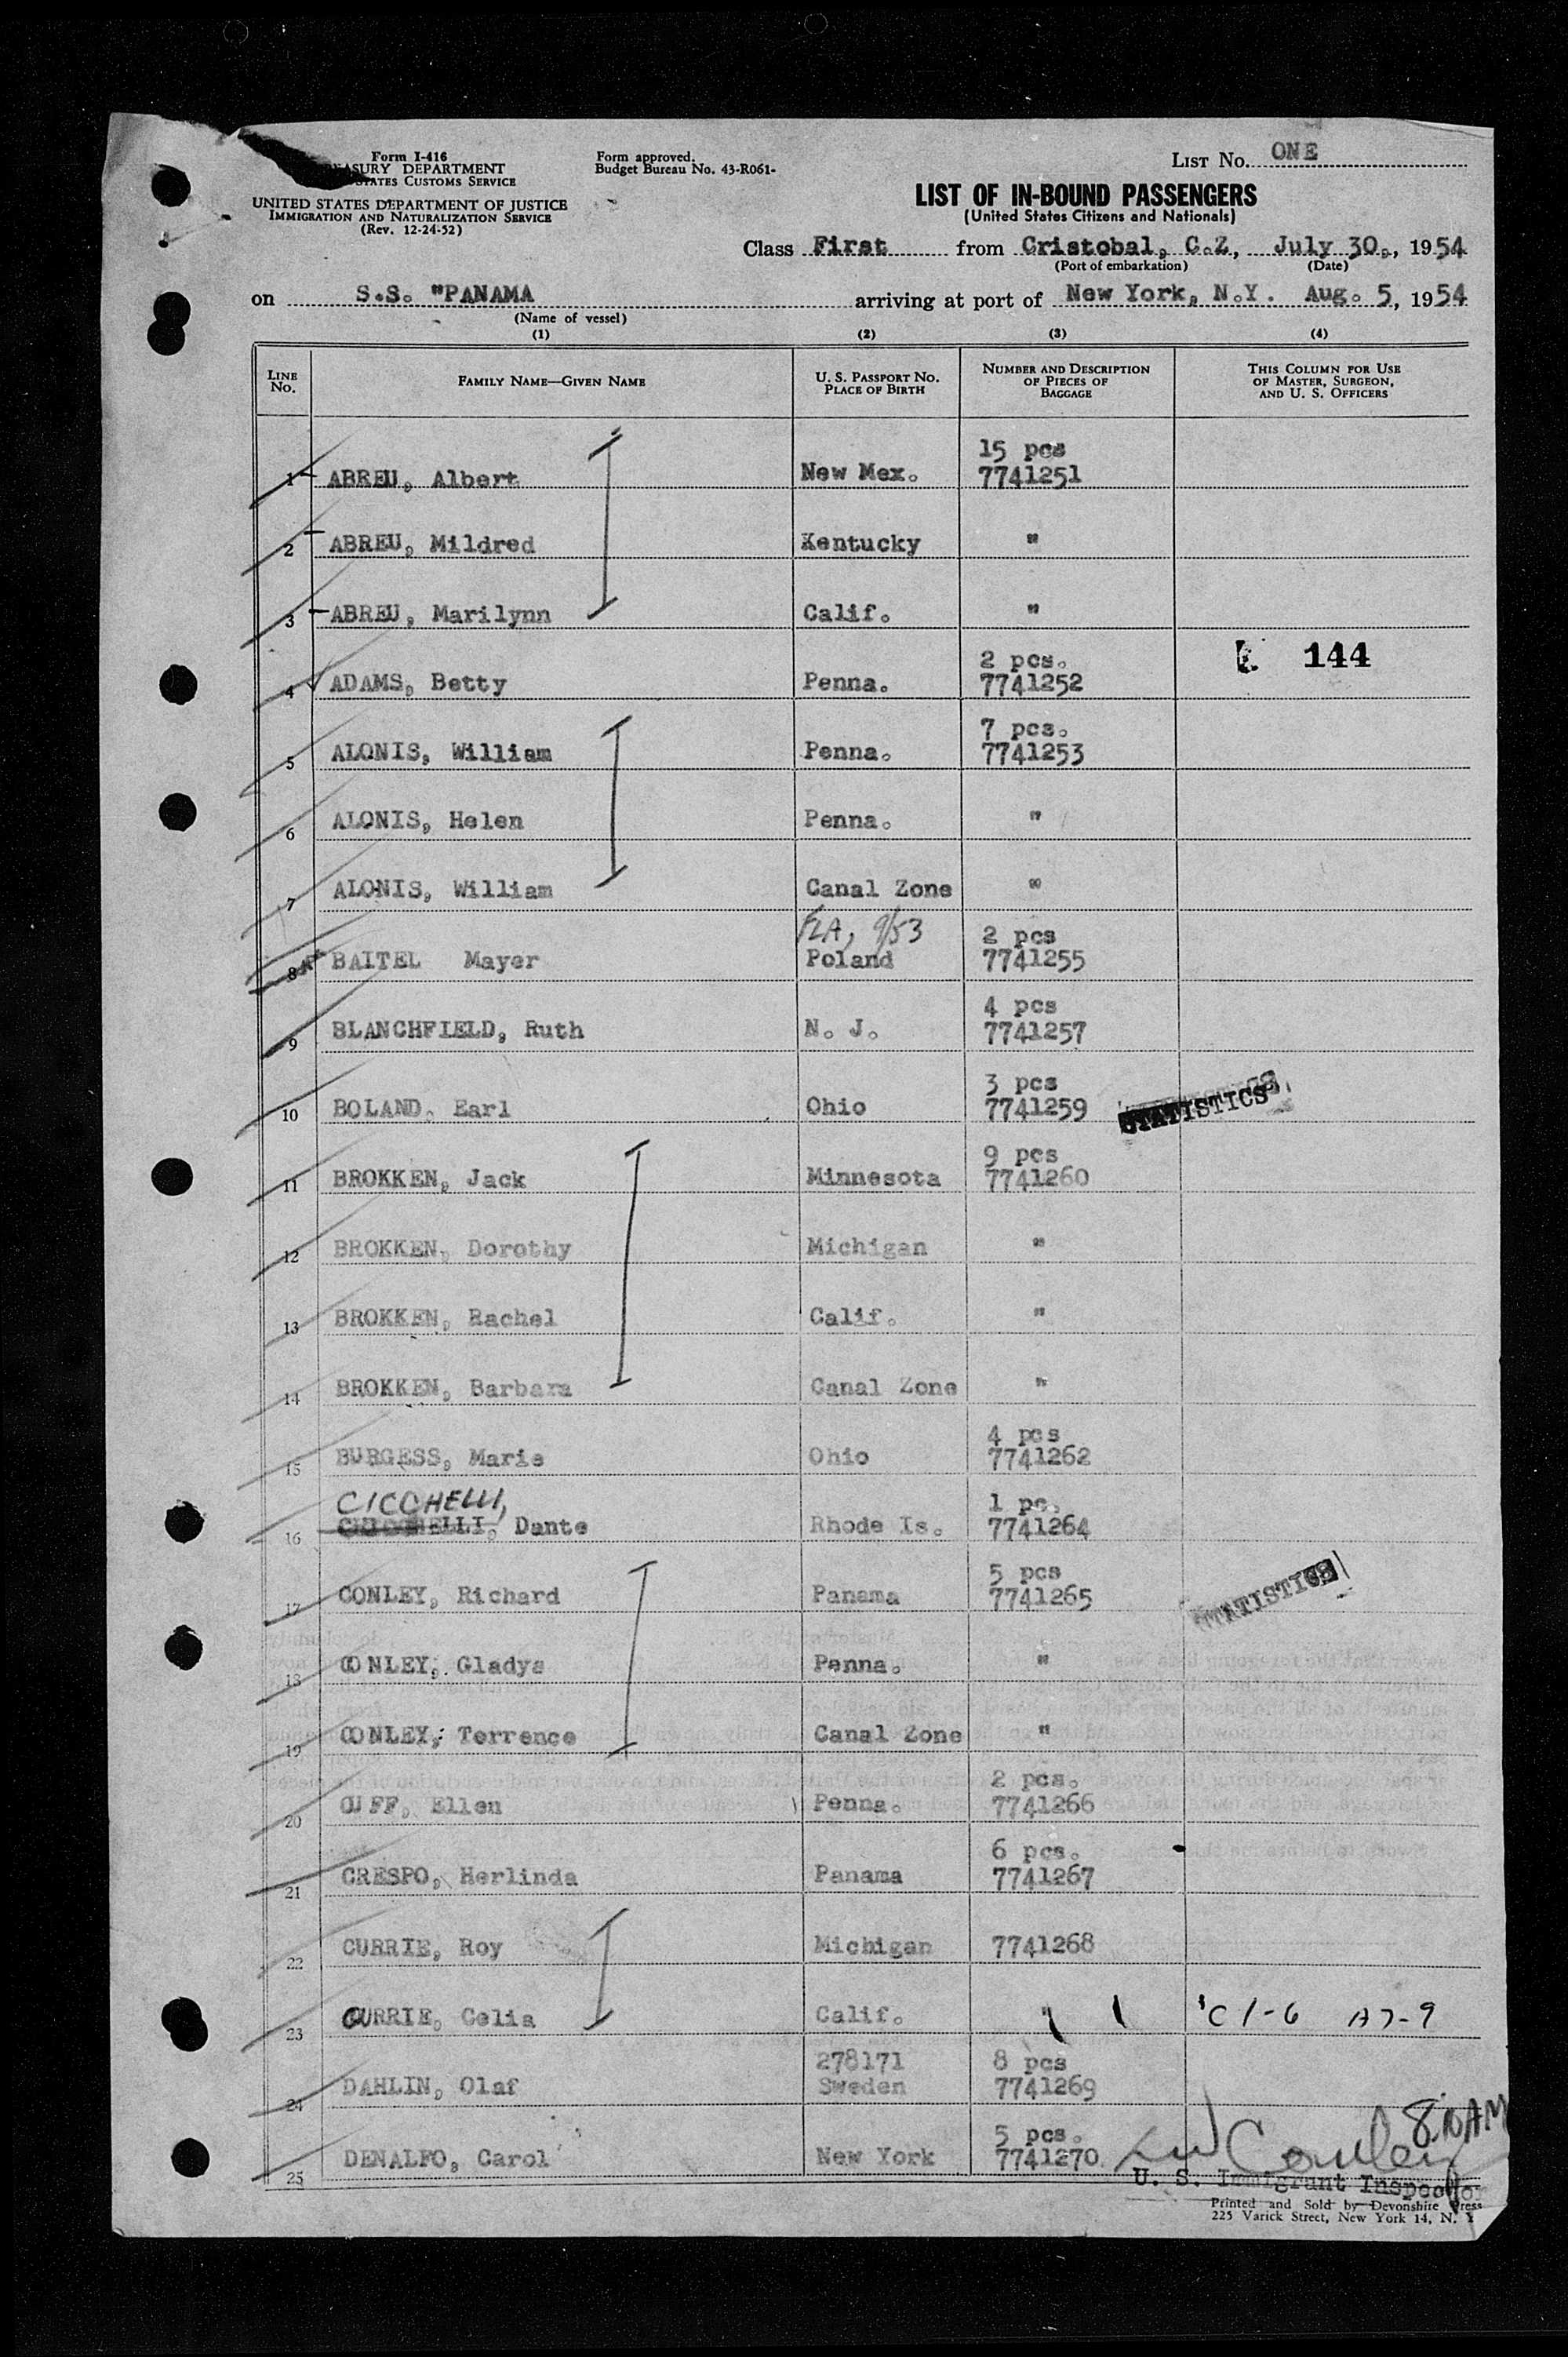 Form I-416
TREASURY DEPARTMENT
STATES CUSTOMS SERVICE
UNITED STATES DEPARTMENT OF JUSTICE
IMMIGRATION AND NATURALIZATION SERVICE
(Rev. 12-24-52)
Form approved.
Budget Bureau No. 43-R061-
LIST NO. ONE
LIST OF IN-BOUND PASSENGERS
(United States Citizens and Nationals)
Class First from Cristobal, C.Z, July 30, 1954
(Port of embarkation) (Date)
on S.S. "PANAMA arriving at port of New York, N.Y. Aug. 5, 1954
(Name of vessel)
(1) (2) (3) (4)
LINE NO. FAMILY NAME—GIVEN NAME U. S. PASSPORT NO. PLACE OF BIRTH NUMBER AND DESCRIPTION OF PIECES OF BAGGAGE THIS COLUMN FOR USE OF MASTER, SURGEON, AND U. S. OFFICERS
15 pcs
1 ABREU, Albert New Mex. 7741251
2 ABREU, Mildred Kentucky "
3 ABREU, Marilynn Calif. "
2 pcs. 144
4 ADAMS, Betty Penna. 7741252
7 pcs.
5 ALONIS, William Penna. 7741253
6 ALONIS, Helen Penna. "
7 ALONIS, William Canal Zone "
FLA, 9/53 2 pcs
8 BAITEL Mayer Poland 7741255
4 pcs
9 BLANCHFIELD, Ruth N. J. 7741257
3 pcs
10 BOLAND, Earl Ohio 7741259 STATISTICS
9 pcs
11 BROKKEN, Jack Minnesota 7741260
12 BROKKEN, Dorothy Michigan "
13 BROKKEN, Rachel Calif. "
14 BROKKEN, Barbara Canal Zone "
4 pcs
15 BURGESS, Marie Ohio 7741262
CICCHELLI, 1 pc.
16 Dante Rhode Is. 7741264
5 pcs
17 CONLEY, Richard Panama 7741265 STATISTICS
18 CONLEY, Gladys Penna. "
19 CONLEY, Terrence Canal Zone "
2 pcs.
20 CUFF, Ellen Penna. 7741266
6 pcs.
21 CRESPO, Herlinda Panama 7741267
22 CURRIE, Roy Michigan 7741268
23 CURRIE, Celia Calif. " C1-6 A7-9
278171 8 pcs
24 DAHLIN, Olaf Sweden 7741269
5 pcs. 8:10 AM
25 DENALFO, Carol New York 7741270
U. S. Immigrant Inspector
Printed and Sold by Devonshire Press
225 Varick Street, New York 14, N. Y